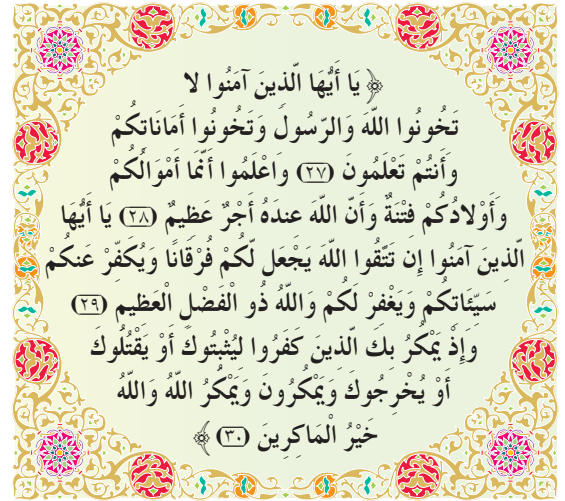 ﴿ يَا أَيُّهَا الَّذِينَ آمَنُوا لا
تَخُونُوا اللّهَ وَالرَّسُولَ وَتَخُونُوا أَمَانَاتِكُمْ
وَأَنتُمْ تَعْلَمُونَ (٢٧) وَاعْلَمُوا أَنَّمَا أَمْوَالُكُمْ
وَأَوْلادُكُمْ فِتْنَةٌ وَأَنَّ اللّهَ عِندَهُ أَجْرٌ عَظِيمٌ (٢٨) يَا أَيُّهَا
الَّذِينَ آمَنُوا إِن تَتَّقُوا اللّهَ يَجْعَل لَّكُمْ فُرْقَانًا وَيُكَفِّرْ عَنكُمْ
سَيِّئَاتِكُمْ وَيَغْفِرْ لَكُمْ وَاللّهُ ذُو الْفَضْلِ الْعَظِيمِ (٢٩)
وَإِذْ يَمْكُرُ بِكَ الَّذِينَ كَفَرُوا لِيُثْبِتُوكَ أَوْ يَقْتُلُوكَ
أَوْ يُخْرِجُوكَ وَيَمْكُرُونَ وَيَمْكُرُ اللّهُ وَاللّهُ
خَيْرُ الْمَاكِرِينَ (٣٠) ﴾